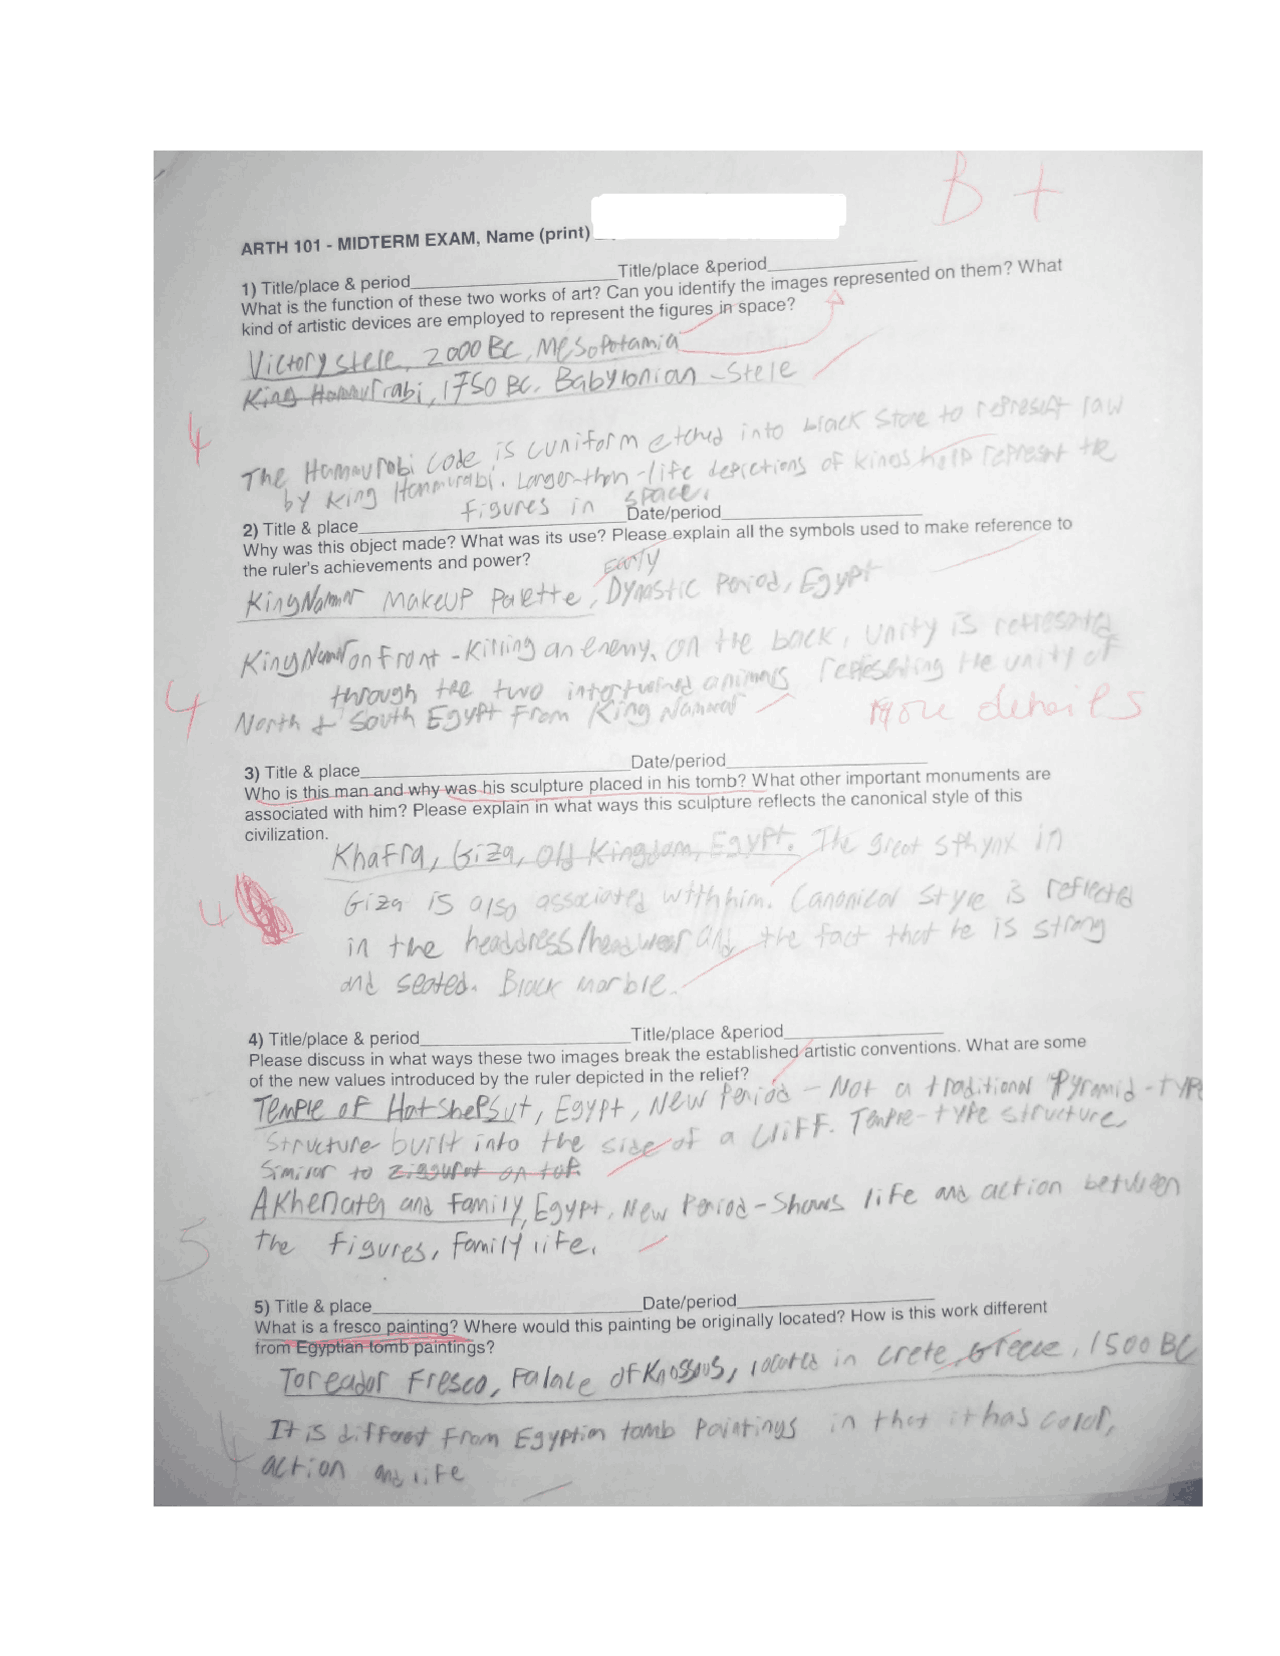 B+
ARTH 101 - MIDTERM EXAM, Name (print)
1) Title/place & period____ Title/place &period____
What is the function of these two works of art? Can you identify the images represented on them? What
kind of artistic devices are employed to represent the figures in space?
Victory stele, 2000 BC, Mesopotamia
King Hammurrabi, 1750 BC. Babylonian - Stele
4
The Hammurobi code is cuniform etched into black stone to represent law
by King Hammurabi. Larger-than-life depictions of kings help represent the
figures in space.
2) Title & place____ Date/period____
Why was this object made? What was its use? Please explain all the symbols used to make reference to
the ruler's achievements and power?
Early
King Namar Makeup Palette, Dynastic Period, Egypt
King Namar on front - Killing an enemy. On the back, unity is represented
through the two intertwined animals representing the unity of
North & South Egypt From King Nammar
4
More details
3) Title & place____ Date/period____
Who is this man and why was his sculpture placed in his tomb? What other important monuments are
associated with him? Please explain in what ways this sculpture reflects the canonical style of this
civilization.
Khafra, Giza, Old Kingdom, Egypt. The great sphynx in
Giza is also associated with him. Canonical style is reflected
4
in the headdress/headwear and the fact that he is strong
and seated. Black marble.
4) Title/place & period____ Title/place &period____
Please discuss in what ways these two images break the established artistic conventions. What are some
of the new values introduced by the ruler depicted in the relief?
Temple of Hatshepsut, Egypt, New Period - Not a traditional Pyramid-type
structure built into the side of a cliff. Temple-type structure.
Similar to Ziggurat on top.
Akhenaten and family, Egypt, New Period - Shows life and action between
5
the figures, family life.
5) Title & place____ Date/period____
What is a fresco painting? Where would this painting be originally located? How is this work different
from Egyptian tomb paintings?
Toreador Fresco, Palace of Knossus, located in Crete, Greece, 1500 BC
It is different from Egyptian tomb paintings in that it has color,
4
action and life